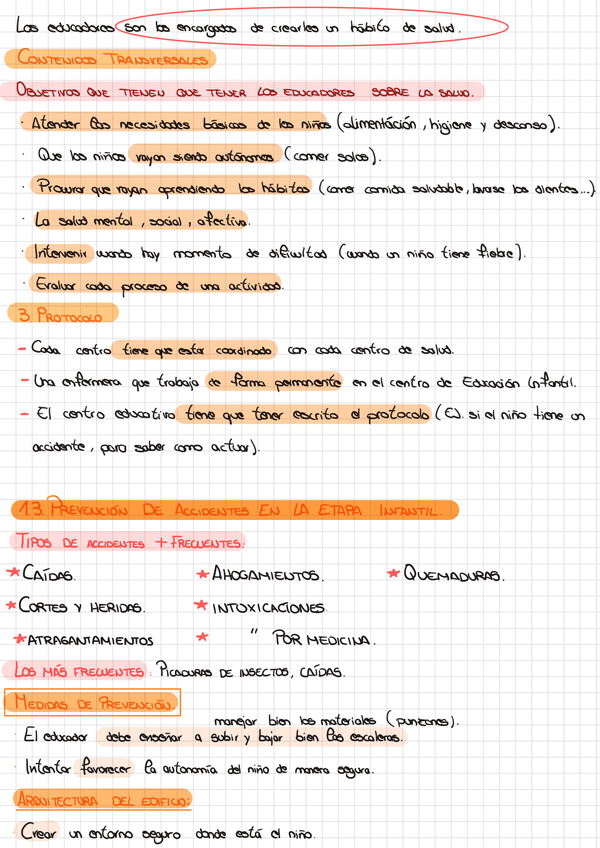 Los educadores son los encargados de crearles un hábito de salud.
CONTENIDOS TRANSVERSALES
OBJETIVOS QUE TIENEN QUE TENER LOS EDUCADORES SOBRE LA SALUD.
· Atender las necesidades básicas de los niños (alimentación, higiene y descanso).
· Que los niños vayan siendo autónomos (comer solos).
· Procurar que vayan aprendiendo los hábitos (comer comida saludable, lavarse los dientes...)
· La salud mental, social, afectiva.
· Intervenir cuando hay momento de dificultad (cuando un niño tiene fiebre).
· Evaluar cada proceso de una actividad.
3. PROTOCOLO
- Cada centro tiene que estar coordinado con cada centro de salud.
- Una enfermera que trabaja de forma permanente en el centro de Educación Infantil.
- El centro educativo tiene que tener escrito el protocolo (EJ. si el niño tiene un
accidente, para saber como actuar).
13. PREVENCIÓN DE ACCIDENTES EN LA ETAPA INFANTIL.
TIPOS DE ACCIDENTES + FRECUENTES:
* CAÍDAS. * AHOGAMIENTOS. * QUEMADURAS.
* CORTES Y HERIDAS. * INTOXICACIONES
* ATRAGANTAMIENTOS * " POR MEDICINA.
LOS MÁS FRECUENTES: PICADURAS DE INSECTOS, CAÍDAS.
MEDIDAS DE PREVENCIÓN.
manejar bien los materiales (punzones).
· El educador debe enseñar a subir y bajar bien las escaleras.
· Intentar favorecer la autonomía del niño de manera segura.
ARQUITECTURA DEL EDIFICIO:
· Crear un entorno seguro donde está el niño.